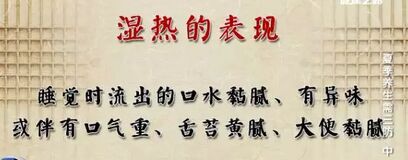 湿热的表现
睡觉时流出的口水黏腻、有异味
或伴有口气重、舌苔黄腻、大便黏腻